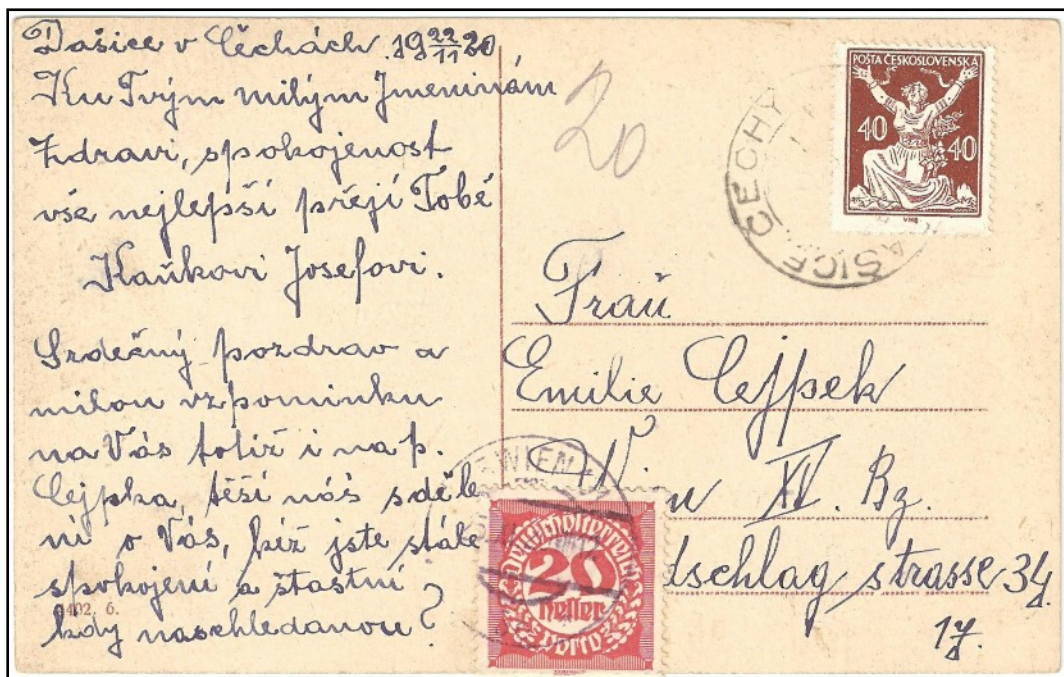 Dašice v Čechách 19 22/11 20
Ku Tvým milým Jmeninám
Zdraví, spokojenost
vše nejlepší přejí Tobě
Kaňkovi Josefovi.
Srdečný pozdrav a
milou vzpomínku
na Vás totiž i na p.
Cejpka, těší náš sděle
ní o Vás, kéž jste stále
spokojení a štastní
kdy naschledanou?
402. 6.
20
POŠTA ČESKOSLOVENSKÁ
40 40
AŠICE ČECHY
Frau
Emilie Cejpek
Wien XV. Bz.
dschlag strasse 34.
17.
WIEN
Deutschösterreich
20
Heller
Porto